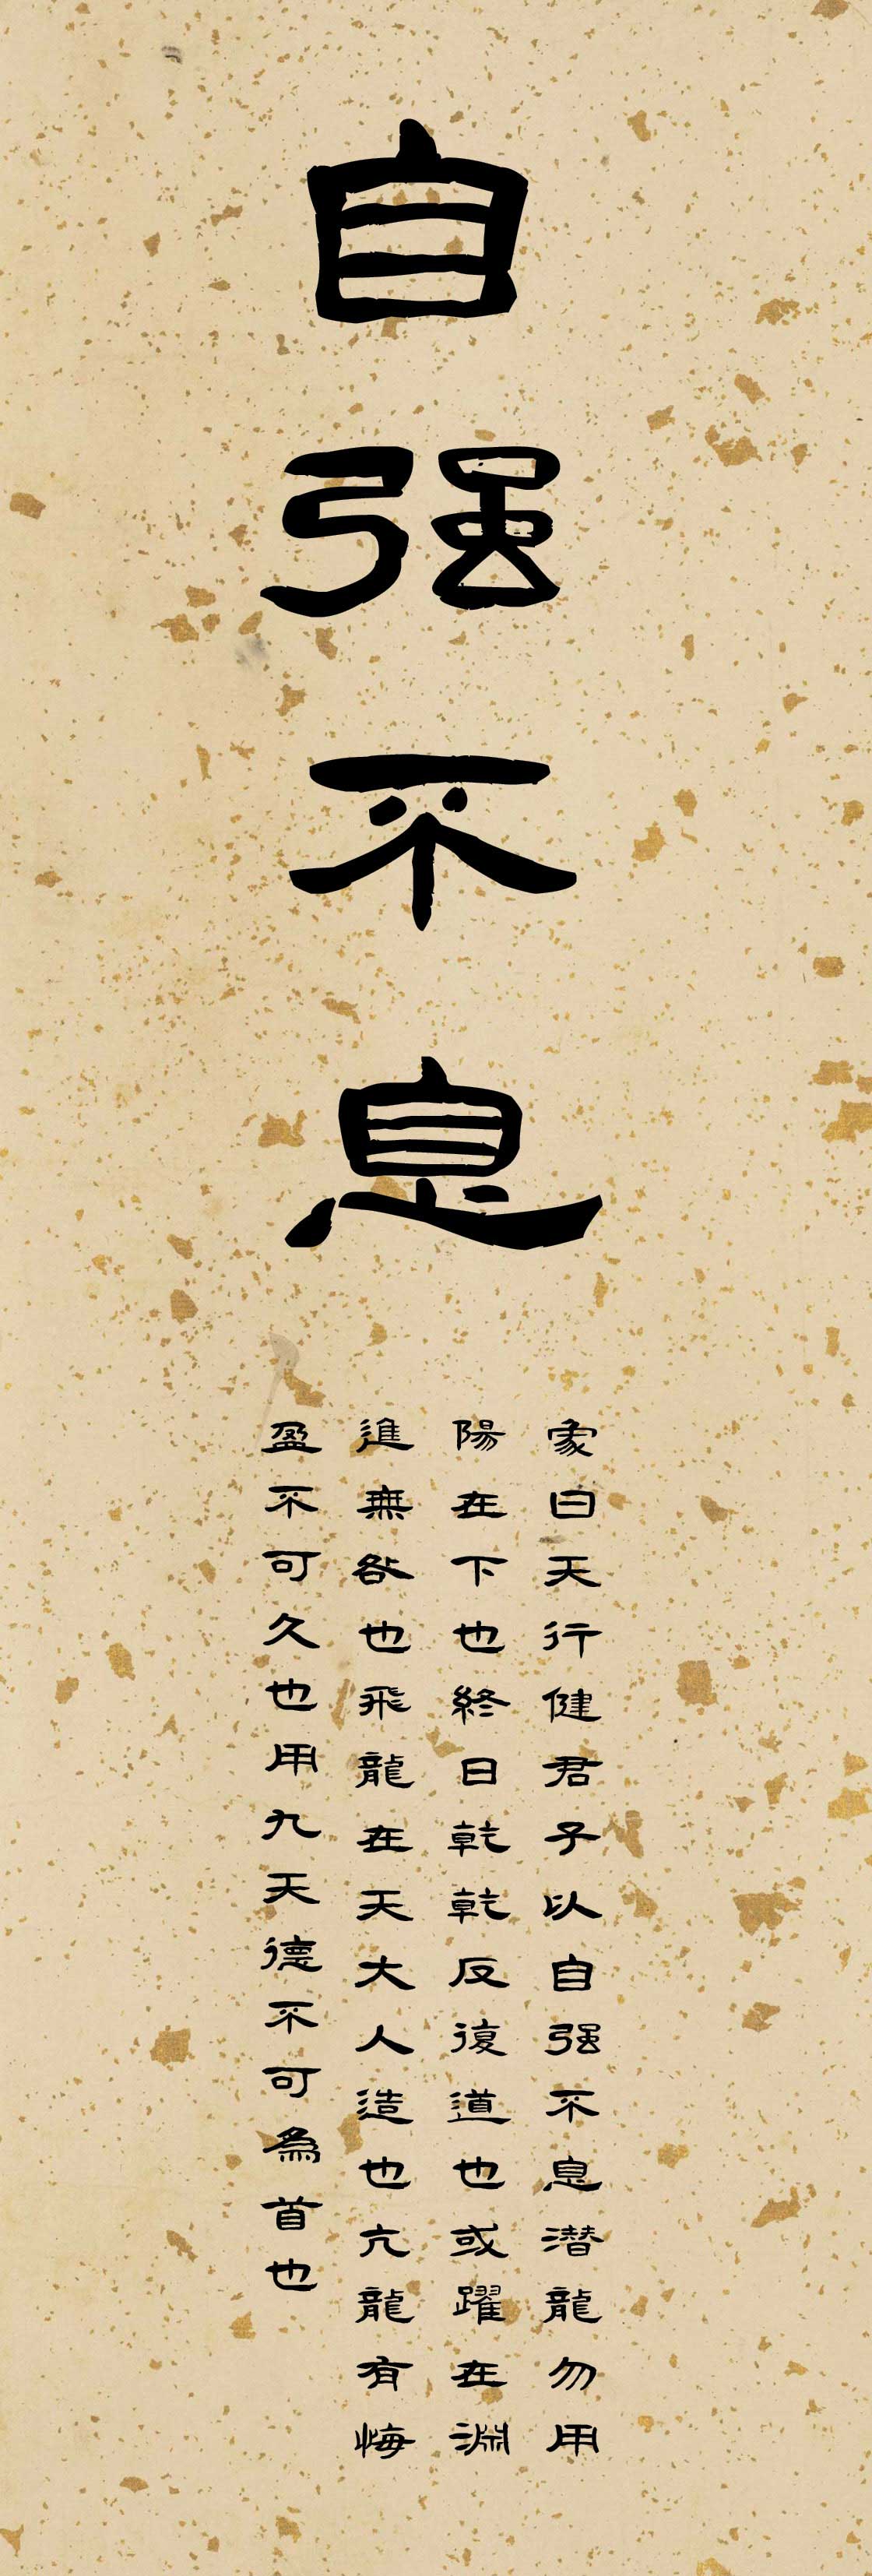 自强不息
象曰天行健君子以自强不息潜龍勿用
陽在下也終日乾乾反復道也或躍在淵
進無咎也飛龍在天大人造也亢龍有悔
盈不可久也用九天德不可為首也